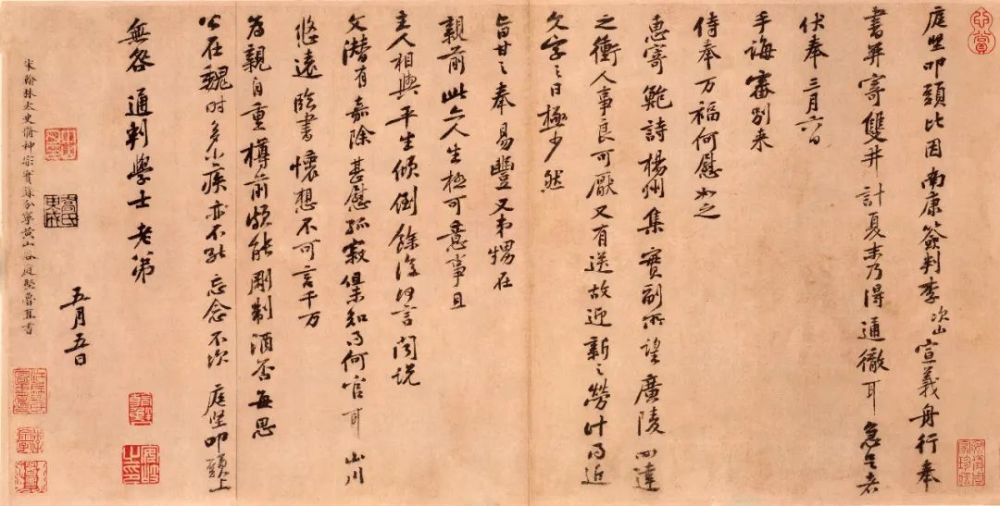 庭堅叩頭比因南康簽判李次山宣義舟行奉
書并寄雙井計夏末乃得通徹耳急足者
伏奉三月六日
手誨審別来
侍奉万福何慰如之
惠寄鮑詩楊州集實副所望廣陵四達
之衝人事良可厭又有送故迎新之勞計得近
文字之日極少然
旨甘之奉易豐又弟甥在
親前此亦人生極可意事且
主人相與平生傾倒餘復何言聞説
文潜有嘉除甚慰孤寂但未知得何官耳山川
悠遠臨書懷想不可言千万
為親自重樽前頗能剛制酒否每思
公在魏時多小疾亦不能忘念不次庭堅叩頭上
無咎通判學士老弟
五月五日
宋翰林太史脩神宗實錄分寧黃山谷庭堅魯直書